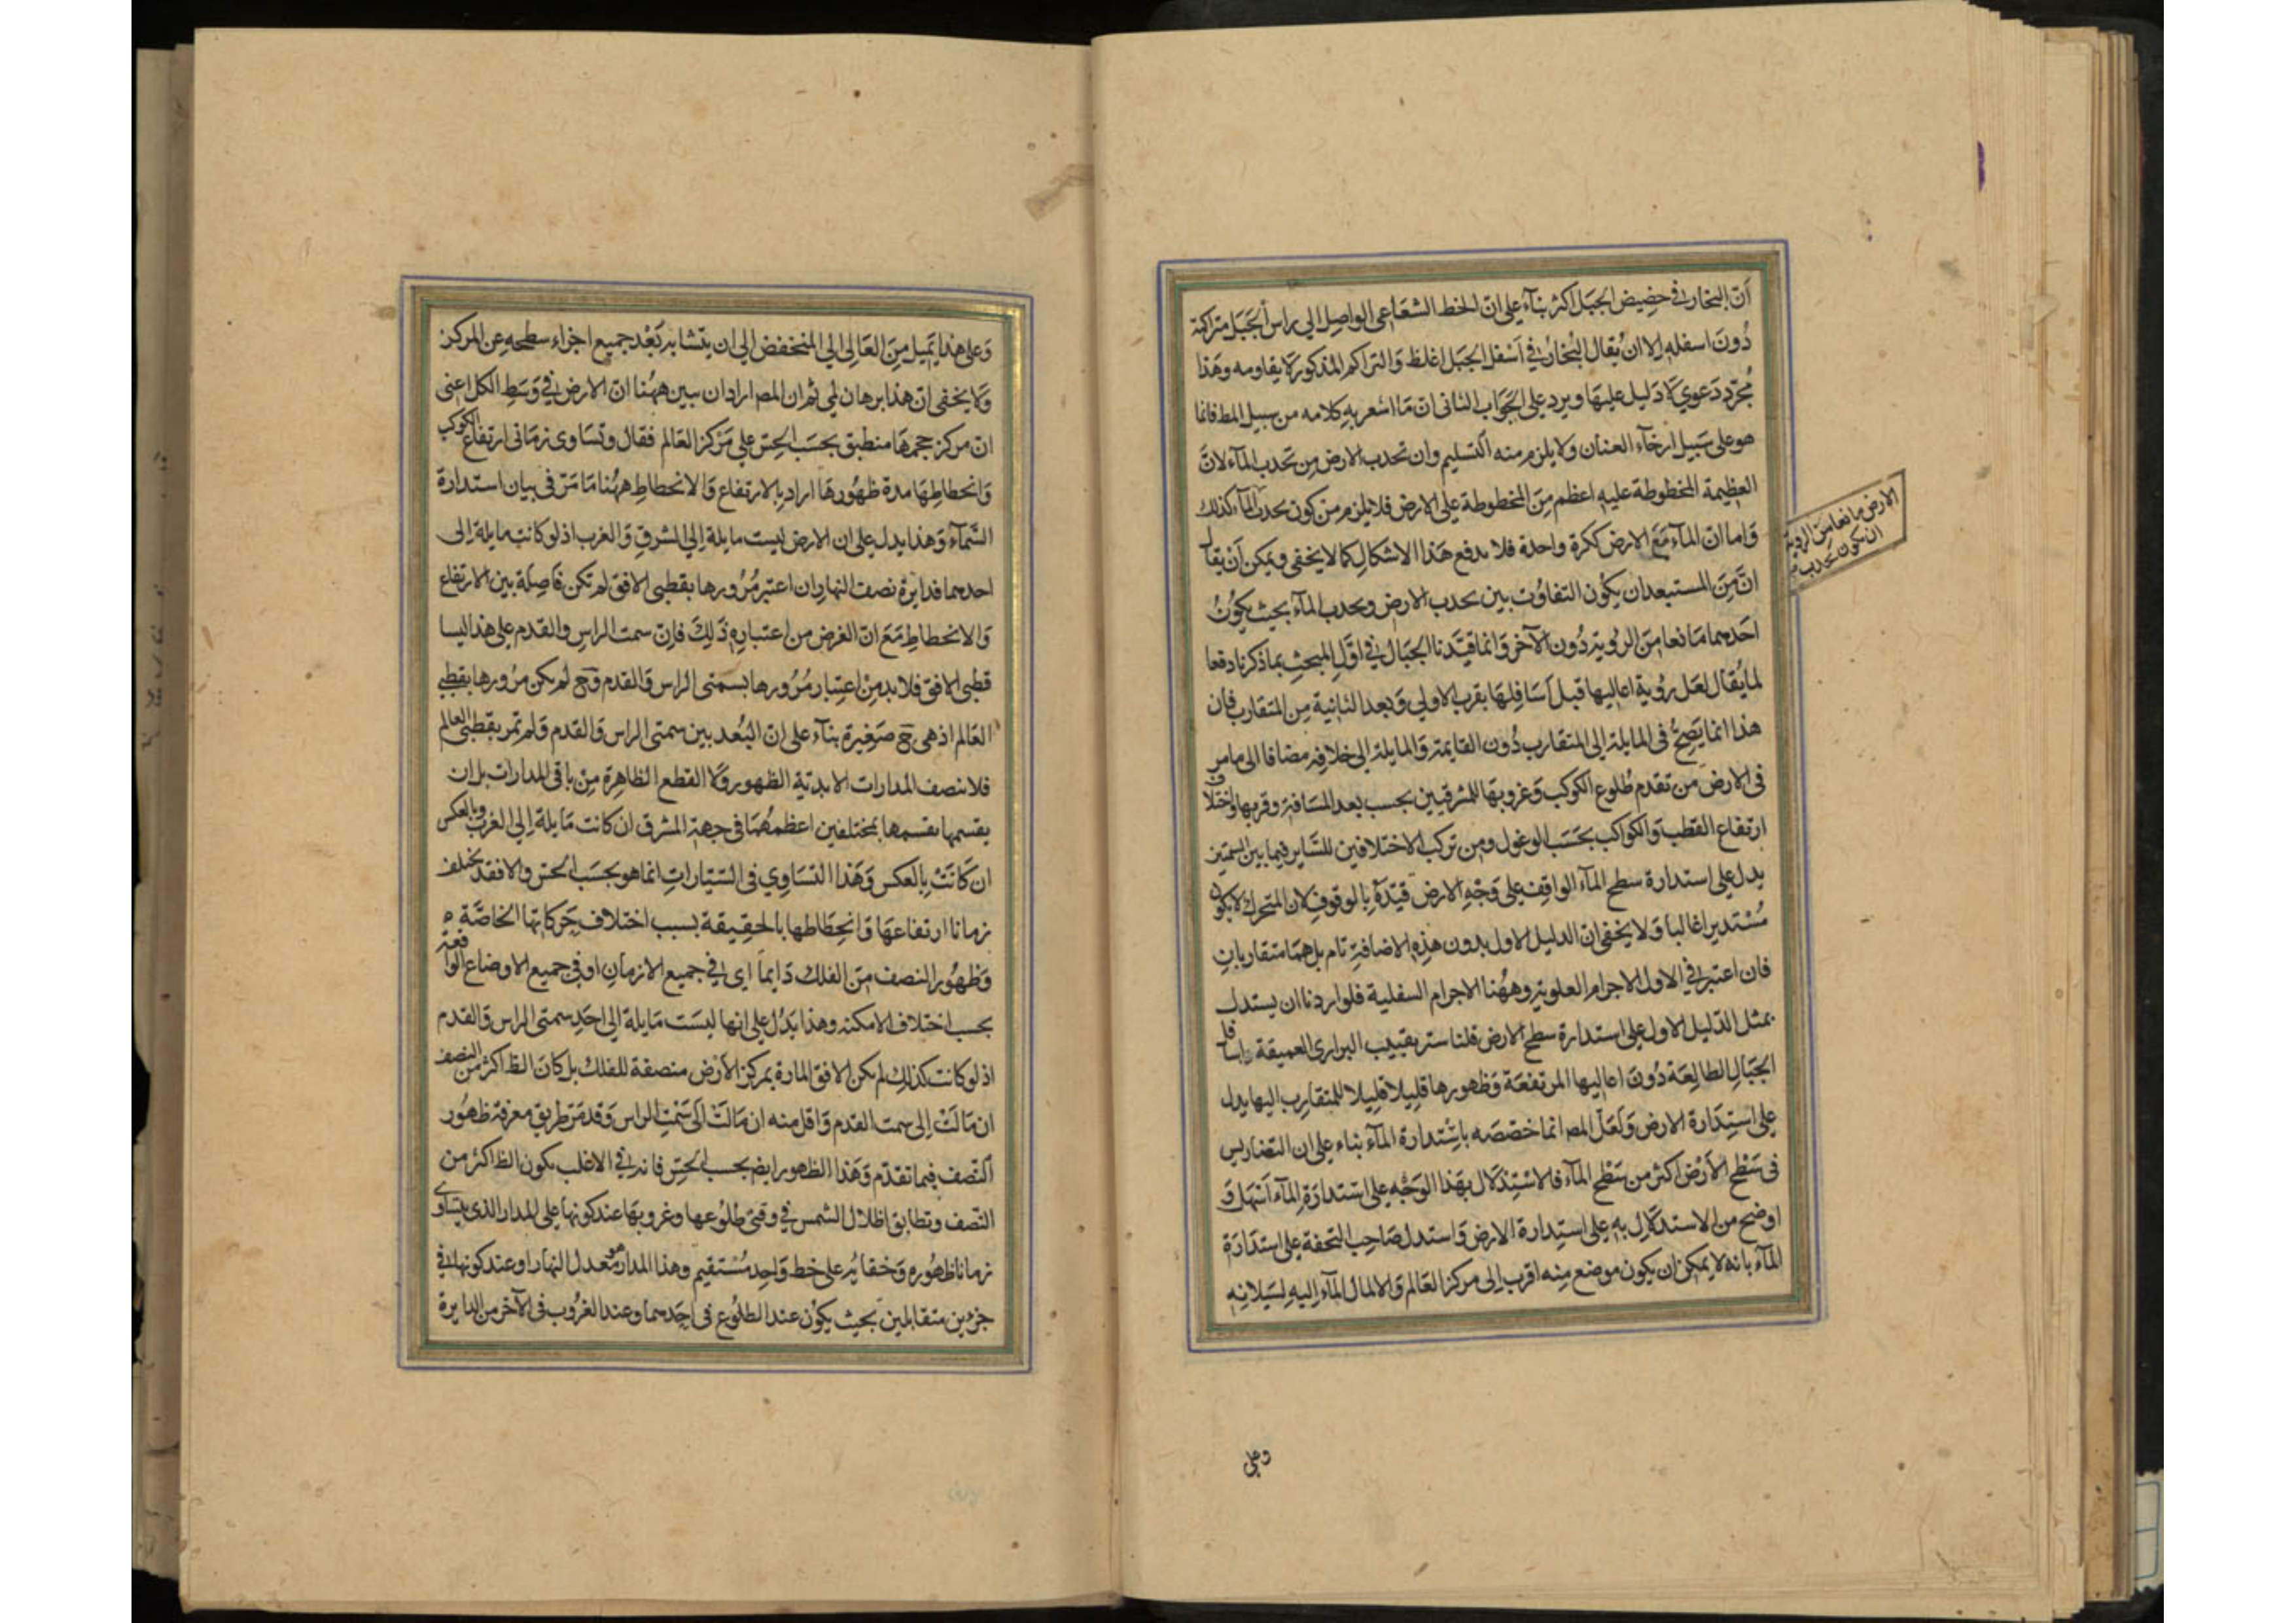 اَنّ البخار في حضيض الجبل اكثر بناءً على انّ الخط الشعاعى الواصل الى راس الجبل متراكمة
دُونَ اسفله الا ان يُقال البُخار في اَسْفل الجبل اغلظ وَالتراكم المذكور لا يقاومه وهَذا
مُجرّد دَعوي لا دَليل عليهَا ويرد على الجَواب الثانى انّ مَا اشعر بهِ كلامه من سبيل المط فانما
هو على سَبيل ارخآء العنان ولا يلزم منه التسليم وان تحدب الارض من تحدب المآء لانّ
العظيمة المخطوطة عليهِ اعظم مِنَ المخطوطة على الارض فلا يلزم من كون تحدب المآء كذلك
وَاما انّ المآء مَعَ الارض ككرة واحدة فلا يدفع هَذا الاشكال كما لا يخفى ويمكن اَنْ يقال
انّ مِنَ المستبعد ان يكُون التفاوُت بين تحدب الارض وتحدب المآء بحيث يكوُنُ
احَدهما مَانعا مِنَ الرُوية دُون الآخر وَانما قيَّدنا الجبَال في اوّل المبحث بما ذكرنا دفعا
لما يُقال لعَل رؤية اعاليها قبل اَسَافِلهَا بقرب الاولي وَبعد الثانية مِن المتقارب فان
هذا انما يَصِحّ فى المايلة الى المتقارب دُون القايمة وَالمايلة الى خلافه مضافا الى ما مر
فى الارض من تقدم طُلوع الكوكب وَغروبهَا للمشرقيين بحسب بعد المسَافة وقربها واختلاف
ارتفاع القطب وَالكواكب بحَسَب الوغول ومن تركب الاختلافين للسَّاير فيما بين السمتين
يدل على استدارة سطح المآء الواقف على وَجْهِ الارض قيّدَهُ بالوقوف لان المتحرك لا يكون
مُسْتديرا غالبا وَلا يخفى انّ الدليل الاول بدون هذِهِ الاضافةِ تام بل همَا متقاربانِ
فان اعتبر في الاول الاجرام العلوية وههُنا الاجرام السفلية فلو اردنا ان يستدل
بمثل الدّليل الاول على استدارة سطح الارض قلنا ستر تقبيب البرارى العميقة اسافل
الجبَال الطالِعَة دُونَ اعَاليها المرتفعَة وَظهورها قليلا قليلا للمتقارب اليها يدل
على استِدَارة الارض وَلعَلّ المصـ انما خصّصَه باستدارة المآء بناء على ان التضاريس
فى سَطْح الاَرْض اكثر من سَطْح المآء فالاسْتِدْلال بهَذا الوَجْه على استدَارَةِ المآء اسْهَل وَ
اوضح من الاستدلَال بهِ على استِدارة الارض وَاستدل صَاحب التحفة على استدَارَة
المآء بانه لا يمكن ان يكون موضع مِنه اقرب الى مركز العَالم وَالا لمال المآء اليهِ لسَيلانِهِ
الارض مانعا من الروية
ان يكون تحدب
وعلى
وَعَلى هَذا يَميل مِنَ العَالى الى المنخفض الى ان يتشابه بَعْد جميع اجزاء سطحه عن المركز
وَلا يخفى انّ هذا برهان لمي ثم ان المصـ اراد ان يبين ههُنا انّ الارض في وَسَطِ الكل اعنى
انّ مركز حجمهَا منطبق بحسَب الحِسّ على مَرْكز العَالم فقال وتسَاوى زمَانى ارتفاع الكوكب
وَانحطاطِهَا مدة ظهُورهَا اراد بالارتفاع وَالانحطاطِ ههُنا مَا مَرّ فى بيان استدارة
السَّمآء وَهذا يدل على ان الارض ليست مايلة إلى المشرق وَالغرب اذ لو كانت مايلة الى
احدهما فدايرة نصف النهار ان اعتبر مُرُورها بقطبى الافق لم تكن فَاصِلَة بين الارتفاع
وَالانحطاطِ مَعَ انّ الغرض من اعتباره ذَلِكَ فاِنّ سمت الراس والقدم على هذا ليسا
قطبى الافق فلا بد مِن اعتِبار مُرُورها بسمتى الراس وَالقدم وَح لم يكن مرُورها بقطبى
العَالم اذ هى ح صَغِيرة بنآء على انّ البُعد بين سمتى الراس وَالقدم وَلم تمر بقطبى العالم
فلا تنصف المدارات الابديّة الظهور وَلا القطع الظاهِرة مِنْ باقى المدارات بل ان
يقسمها يقسمها بمختلفين اعظمهُمَا فى جهة المشرق ان كانت مَايلة إلى الغرب وبالعكس
ان كَانَتْ بالعكس وَهَذا التسَاوِي فى السّيَّاراتِ انما هو بحسَب الحسّ والا فقد يختلف
زمانا ارتفاعهَا وَانحِطَاطها بالحقيقة بسبب اختلاف حَركاتها الخاصَّة
وَظهُور النصف مِن الفلك دَايماً اى في جميع الازمان او في جميع الاوضاع الواقعة
بحسب اختلاف الامكنة وهذا يَدُل على انها ليسَت مَايلة إلى احَدِ سمتى الراس وَالقدم
اذ لو كانت كذلك لم يكن الافق المارة بمركز الارض منصفة للفلك بل كان الظ اكثر من النصف
ان مَالَتْ إلى سمت القدم وَاقل منه ان مَالَتْ الى سَمْت الراس وَقد مَرّ طريق معرفة ظهُور
النّصف فيما تقدّم وَهَذا الظهور ايضـ بحسب الحسّ فانه في الاغلب يكون الظ اكثر من
النّصف وتطابق اظلال الشمس في وقتى طلُوعها وغروبهَا عند كونها على المدار الذى يتساوى
زمانا ظهُوره وَخفائه على خط وَاحِد مُسْتقيم وهذا المدار هو معدل النهار او عند كونها فى
جزءين متقابلين بحيث يكوُن عند الطلوُع فى احَدهما وعند الغرُوب فى الآخر من الدايرة